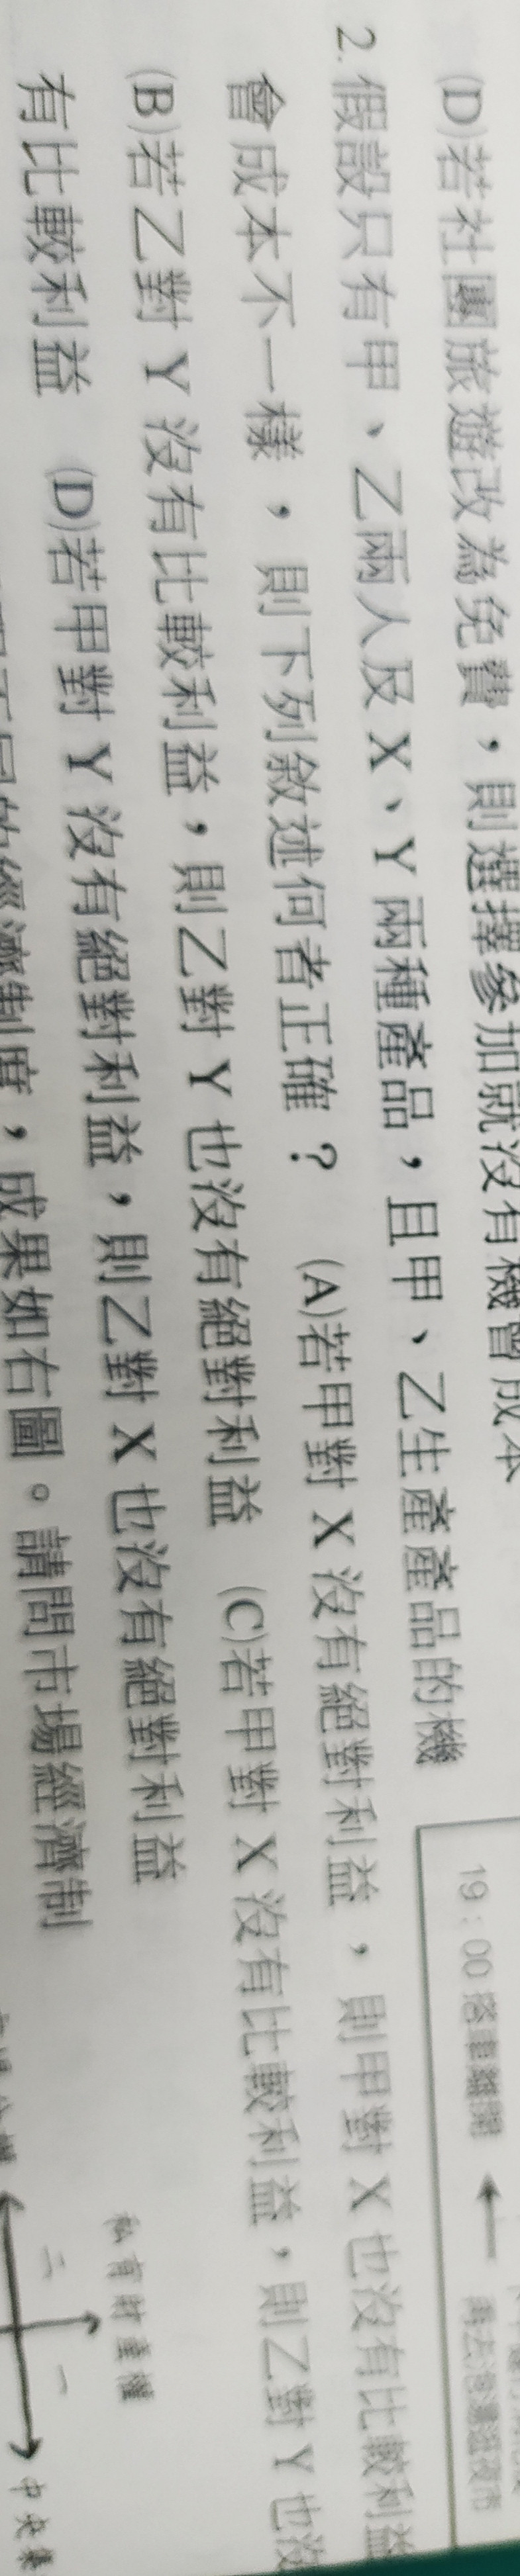 (D)若社團旅遊改為免費，則選擇參加就沒有機會成本
2.假設只有甲、乙兩人及 X、Y 兩種產品，且甲、乙生產產品的機
會成本不一樣，則下列敘述何者正確？ (A)若甲對 X 沒有絕對利益，則甲對 X 也沒有比較利益
(B)若乙對 Y 沒有比較利益，則乙對 Y 也沒有絕對利益 (C)若甲對 X 沒有比較利益，則乙對 Y 也沒
有比較利益 (D)若甲對 Y 沒有絕對利益，則乙對 X 也沒有絕對利益
的經濟制度，成果如右圖。請問市場經濟制
19：00 搭車離開
私有財產權
二 一
中央